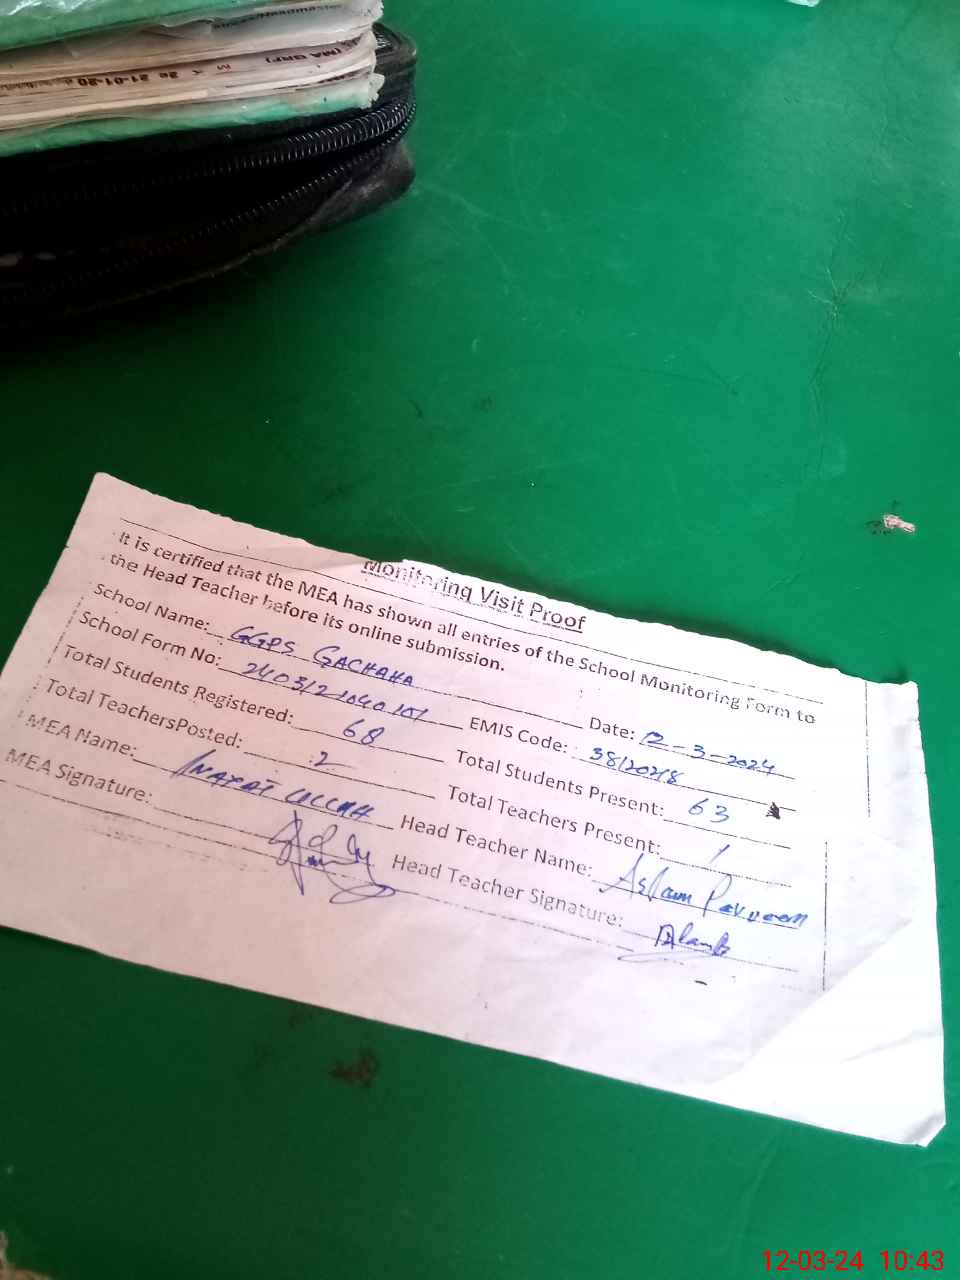 (MA GRF)
M K 2e 21-01-20
Monitoring Visit Proof
It is certified that the MEA has shown all entries of the School Monitoring Form to
the Head Teacher before its online submission.
School Name: GGPS GACHAHA Date: 12-3-2024
School Form No: EMIS Code:
Total Students Registered: 68 Total Students Present: 63
Total TeachersPosted: 2 Total Teachers Present: 1
MEA Name: INAYAT ULLAH Head Teacher Name: Aslam Parveen
MEA Signature: Head Teacher Signature:
12-03-24 10:43